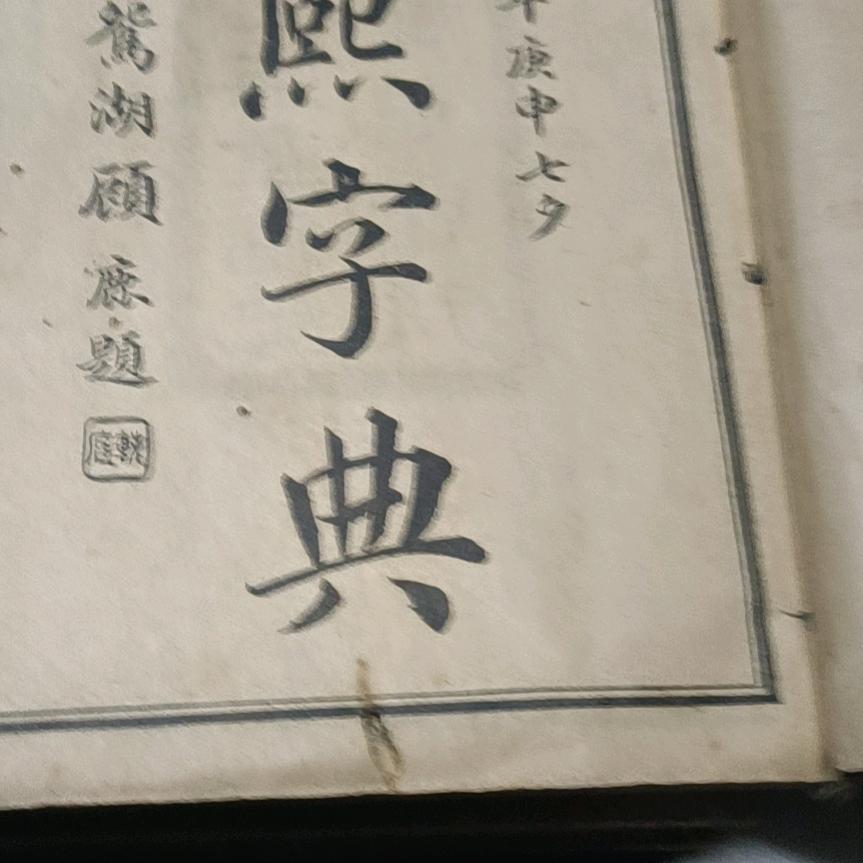 年庚申七夕
熙字典
鴛湖顧㢘題